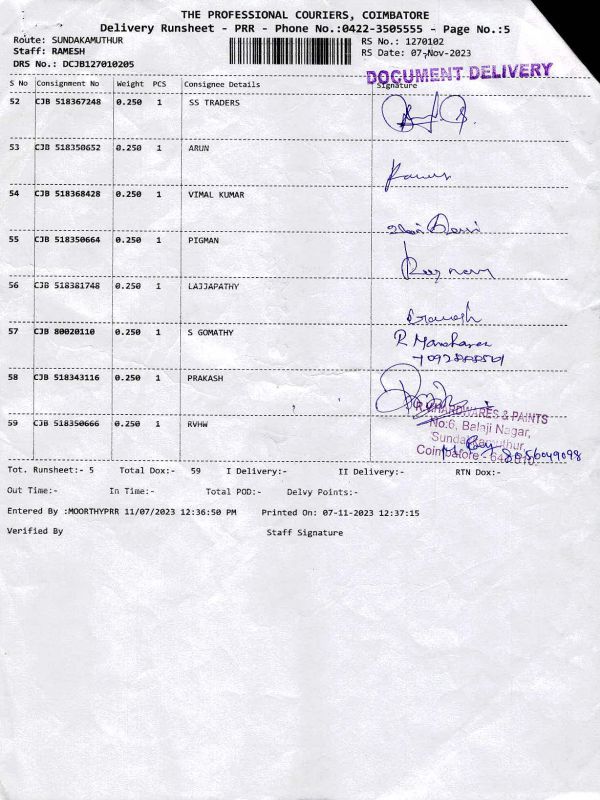 THE PROFESSIONAL COURIERS, COIMBATORE
Delivery Runsheet - PRR - Phone No.:0422-3505555 - Page No.:5
Route: SUNDAKAMUTHUR RS No.: 1270102
Staff: RAMESH RS Date: 07-Nov-2023
DRS No.: DCJB127010205
DOCUMENT DELIVERY
S No Consignment No Weight PCS Consignee Details Signature
52 CJB 518367248 0.250 1 SS TRADERS
53 CJB 518350652 0.250 1 ARUN
54 CJB 518368428 0.250 1 VIMAL KUMAR
55 CJB 518350664 0.250 1 PIGMAN
56 CJB 518381748 0.250 1 LAJJAPATHY
57 CJB 80020110 0.250 1 S GOMATHY
R Manoharan
58 CJB 518343116 0.250 1 PRAKASH
HARDWARES & PAINTS
No:6, Balaji Nagar,
59 CJB 518350666 0.250 1 RVHW
Sundakamuthur,
Coimbatore - 641010.
8056049098
Tot. Runsheet:- 5 Total Dox:- 59 I Delivery:- II Delivery:- RTN Dox:-
Out Time:- In Time:- Total POD:- Delvy Points:-
Entered By :MOORTHYPRR 11/07/2023 12:36:50 PM Printed On: 07-11-2023 12:37:15
Verified By Staff Signature